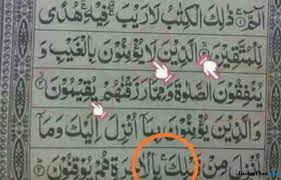 الٓمّٓ ۚ ذٰلِكَ الْكِتٰبُ لَا رَيْبَ ۛ فِيْهِ ۛ هُدًى
لِّلْمُتَّقِيْنَ ۙ الَّذِيْنَ لَا يُؤْمِنُوْنَ بِالْغَيْبِ وَ
يُنْفِقُوْنَ الصَّلٰوةَ وَمِمَّا رَزَقْنٰهُمْ يُقِيْمُوْنَ ۙ ٣
وَالَّذِيْنَ يُؤْمِنُوْنَ بِمَا اُنْزِلَ اِلَيْكَ وَمَا
اُنْزِلَ مِنْ قَبْلِكَ ۚ بِالْاٰخِرَةِ هُمْ يُوْقِنُوْنَ